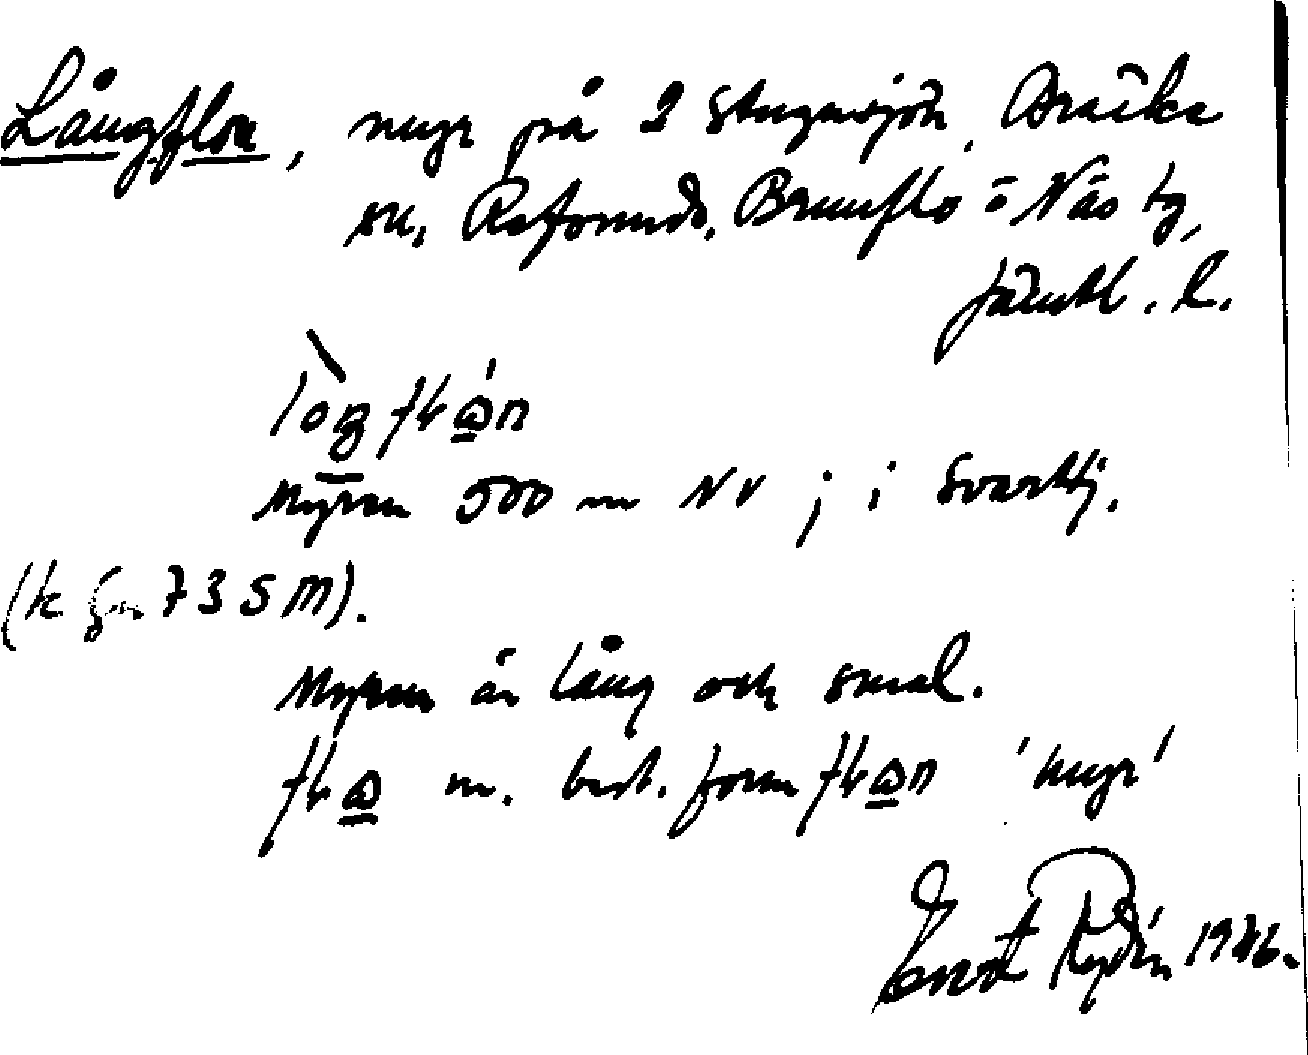 Långflon, myr på 2 Stugusjön, Bräcke
sn, Refsunds, Brunflo o Näs tg,
Jämtl. l.
Myren 500 m NV ; i Svarttj.
(k 735 M).
Myren är lång och smal.
m. best. form 'myr'
Ernst Rydén 1946.